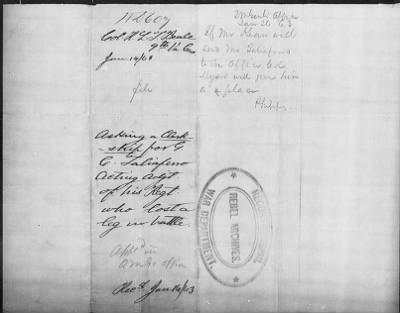 Col. R. L. T. Beale
9th Va Cav
Jany 14/63
file
Asking a Clerk
-ship for G.
C. Taliaferro
Acting Adjt
of his Regt.
who lost a
leg in battle.
in
Office
Rec'd Jan 14/63
Jan 26, 63
If Mr. will
send Mr. Taliaferro
to the Office Col
will give him
a place
RECORD DIVISION
REBEL ARCHIVES.
WAR DEPARTMENT.